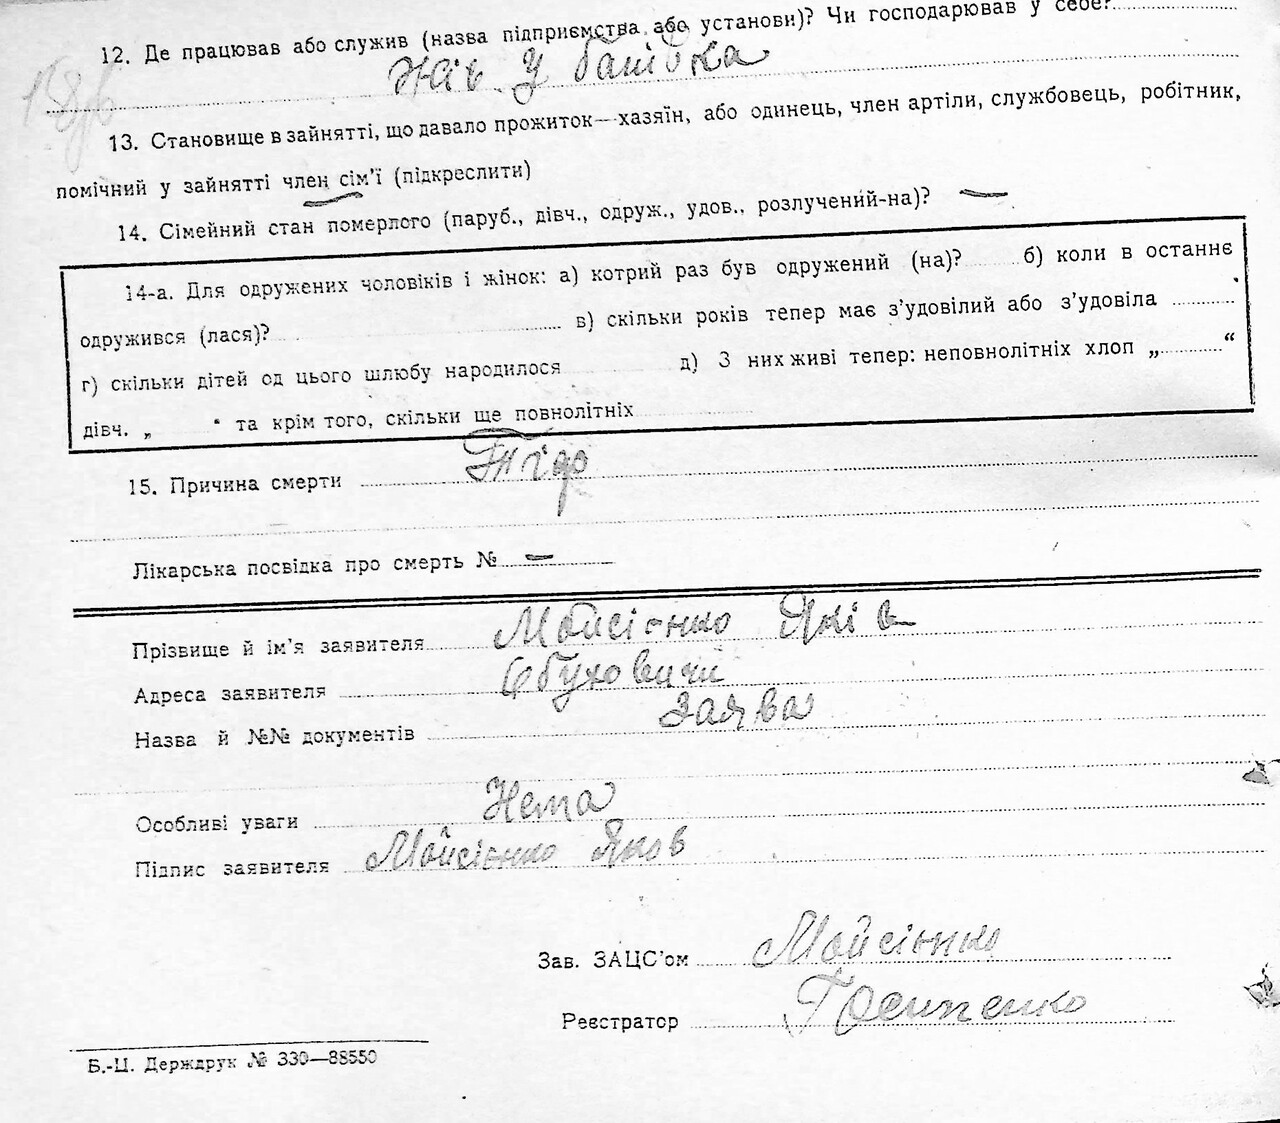 12. Де працював або служив (назва підприємства або установи)? Чи господарював у себе?
Жів у батька
13. Становище в зайнятті, що давало прожиток—хазяїн, або одинець, член артіли, службовець, робітник,
помічний у зайнятті член сім'ї (підкреслити)
14. Сімейний стан померлого (паруб., дівч., одруж., удов., розлучений-на)? —
14-а. Для одружених чоловіків і жінок: а) котрий раз був одружений (на)? б) коли в останнє
одружився (лася)? в) скільки років тепер має з'удовілий або з'удовіла
г) скільки дітей од цього шлюбу народилося д) З них живі тепер: неповнолітніх хлоп „ “
дівч. „ “ та крім того, скільки ще повнолітніх
15. Причина смерти
Лікарська посвідка про смерть № —
Прізвище й ім'я заявителя Мойсієнко Яків
Адреса заявителя Обуховичи
Назва й №№ документів Заява
Особливі уваги Нема
Підпис заявителя Мойсієнко Яков
Зав. ЗАЦС'ом Мойсієнко
Реєстратор
Б.-Ц. Держдрук № 330—88550